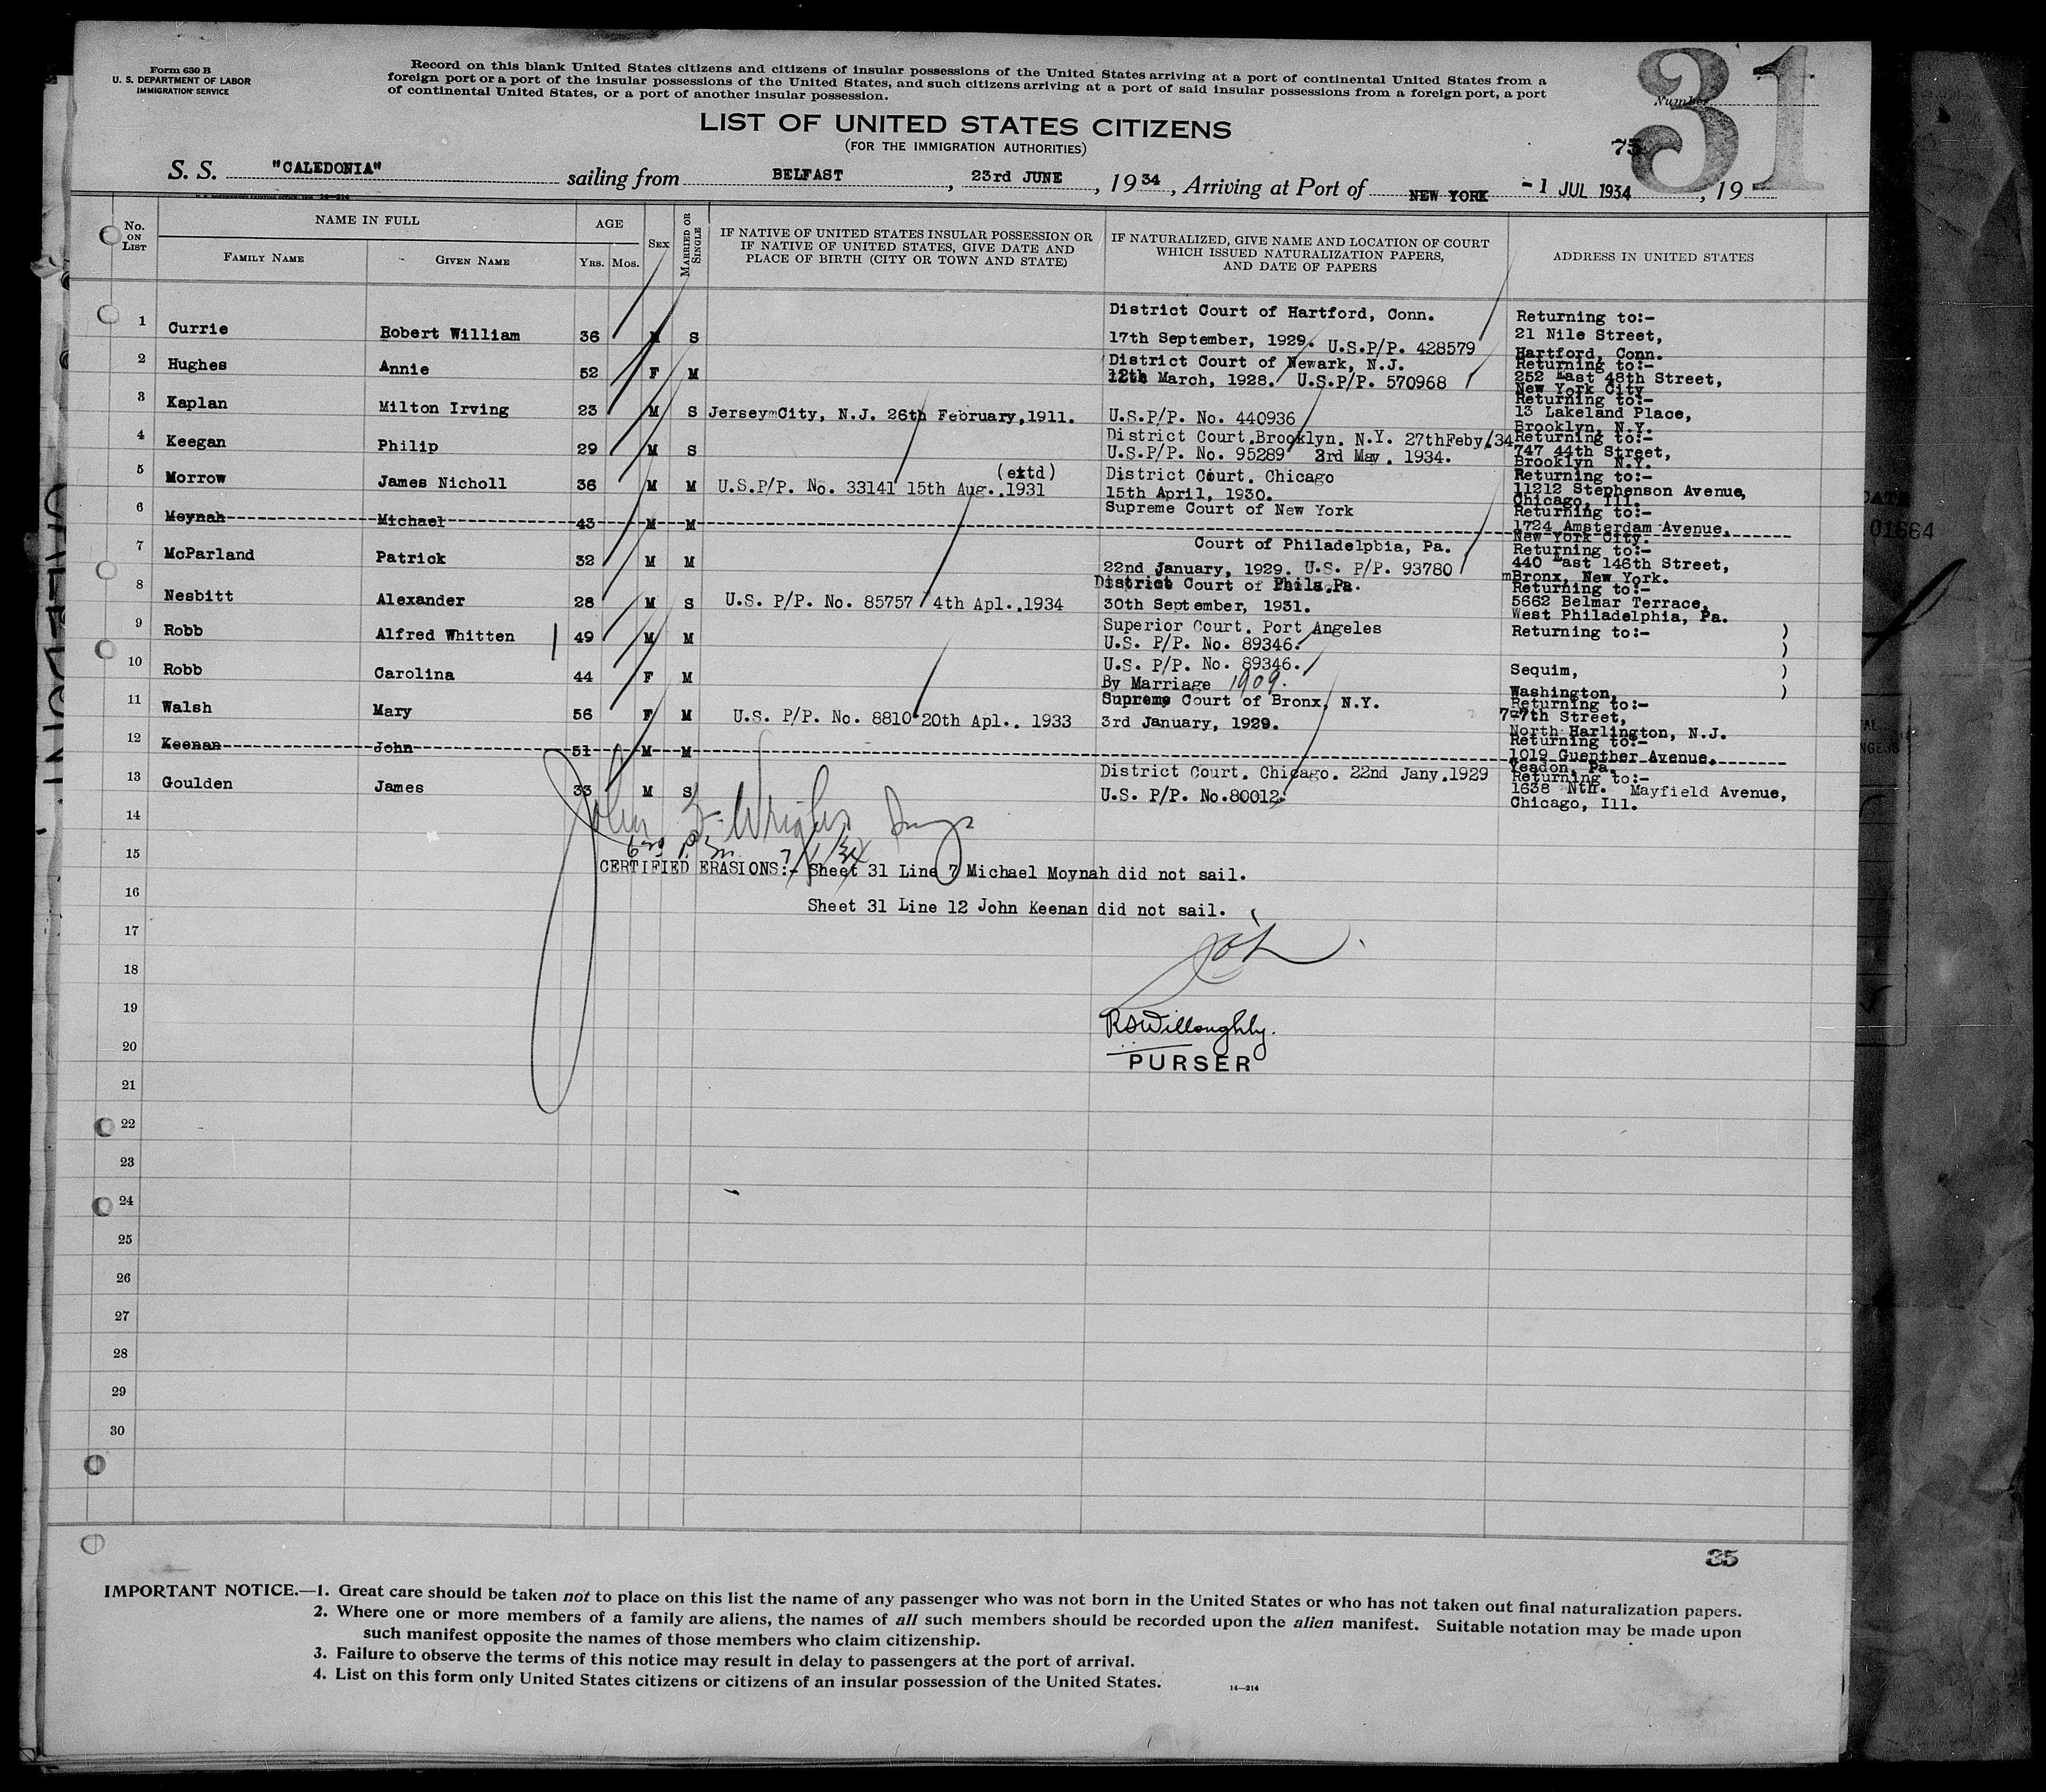 Form 630 B
U. S. DEPARTMENT OF LABOR
IMMIGRATION SERVICE
Record on this blank United States citizens and citizens of insular possessions of the United States arriving at a port of continental United States from a
foreign port or a port of the insular possessions of the United States, and such citizens arriving at a port of said insular possessions from a foreign port, a port
of continental United States, or a port of another insular possession.
Number
31
LIST OF UNITED STATES CITIZENS
(FOR THE IMMIGRATION AUTHORITIES)
75
S. S. "CALEDONIA" sailing from BELFAST, 23rd JUNE, 1934, Arriving at Port of NEW YORK -1 JUL 1934, 19
No. ON LIST
NAME IN FULL
FAMILY NAME
GIVEN NAME
AGE
YRS. MOS.
SEX
MARRIED OR SINGLE
IF NATIVE OF UNITED STATES INSULAR POSSESSION OR
IF NATIVE OF UNITED STATES, GIVE DATE AND
PLACE OF BIRTH (CITY OR TOWN AND STATE)
IF NATURALIZED, GIVE NAME AND LOCATION OF COURT
WHICH ISSUED NATURALIZATION PAPERS,
AND DATE OF PAPERS
ADDRESS IN UNITED STATES
1 Currie Robert William 36 M S
District Court of Hartford, Conn.
17th September, 1929. U.S.P/P. 428579
Returning to:-
21 Nile Street,
Hartford, Conn.
2 Hughes Annie 52 F M
District Court of Newark, N.J.
12th March, 1928. U.S.P/P. 570968
Returning to:-
252 East 48th Street,
New York City
3 Kaplan Milton Irving 23 M S Jersey City, N.J. 26th February, 1911.
U.S.P/P. No. 440936
Returning to:-
13 Lakeland Place,
Brooklyn, N.Y.
4 Keegan Philip 29 M S
District Court. Brooklyn. N.Y. 27thFeby/34
U.S.P/P. No. 95289 3rd May. 1934.
Returning to:-
747 44th Street,
Brooklyn N.Y.
5 Morrow James Nicholl 36 M M (extd)
U.S.P/P. No. 33141 15th Aug. 1931
District Court. Chicago
15th April, 1930.
Returning to:-
11212 Stephenson Avenue,
Chicago, Ill.
6 Moynah Michael 43 M M
Supreme Court of New York
Returning to:-
1724 Amsterdam Avenue,
New York City.
7 McParland Patrick 32 M M
Court of Philadelpbia, Pa.
22nd January, 1929. U.S. P/P. 93780
Returning to:-
440 East 146th Street,
Bronx, New York.
8 Nesbitt Alexander 28 M S U.S. P/P. No. 85757 4th Apl. 1934
District Court of Phila.Pa.
30th September, 1931.
Returning to:-
5662 Belmar Terrace,
West Philadelphia, Pa.
9 Robb Alfred Whitten 49 M M
Superior Court. Port Angeles
U.S. P/P. No. 89346.
Returning to:- )
)
10 Robb Carolina 44 F M
U.S. P/P. No. 89346.
By Marriage 1909.
Sequim, )
Washington, )
11 Walsh Mary 56 F M U.S. P/P. No. 8810 20th Apl. 1933
Supreme Court of Bronx, N.Y.
3rd January, 1929.
Returning to:-
7-7th Street,
North Harlington, N.J.
12 Keenan John 51 M M
Returning to:-
1019 Guenther Avenue,
Yeadon, Pa.
13 Goulden James 33 M S
District Court. Chicago. 22nd Jany. 1929
U.S. P/P. No.80012.
Returning to:-
1638 Nth. Mayfield Avenue,
Chicago, Ill.
14
John Wright
15
CERTIFIED ERASIONS:- Sheet 31 Line 7 Michael Moynah did not sail.
16
Sheet 31 Line 12 John Keenan did not sail.
17
18
19
R S Willoughby.
20
PURSER
21
22
23
24
25
26
27
28
29
30
35
IMPORTANT NOTICE.—1. Great care should be taken not to place on this list the name of any passenger who was not born in the United States or who has not taken out final naturalization papers.
2. Where one or more members of a family are aliens, the names of all such members should be recorded upon the alien manifest. Suitable notation may be made upon
such manifest opposite the names of those members who claim citizenship.
3. Failure to observe the terms of this notice may result in delay to passengers at the port of arrival.
4. List on this form only United States citizens or citizens of an insular possession of the United States.
14—214
01664